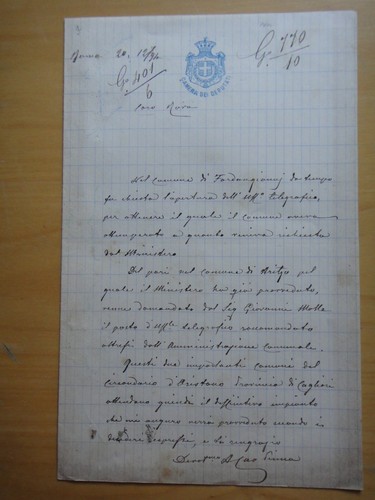 Roma 20. 12/94
G. 770/10
G. 401/6
CAMERA DEI DEPUTATI
Caro Rava
Nel comune di Fordongianus da tempo
fu chiesta l'apertura dell'Uff.o telegrafico,
per ottenere il quale il comune aveva
ottemperato a quanto veniva richiesto
dal Ministero
Del pari nel comune di Aritzo pel
quale il Ministero ha già provveduto,
venne domandato dal Sig Giovanni
il posto d'Uff.le telegrafico raccomandato
altresì dall'Amministrazione Comunale.
Questi due importanti comuni del
circondario d'Oristano Provincia di Cagliari
attendono quindi il definitivo impianto
che mi auguro verrà provveduto secondo i
desideri espressi, e La ringrazio
Devot.mo Cao Pinna